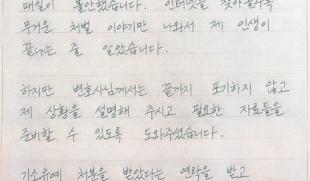 매일이 불안했습니다. 인터넷을 찾아볼수록
무거운 처벌 이야기만 나와서 제 인생이
끝나는 줄 알았습니다.
하지만 변호사님께서는 끝까지 포기하지 않고
제 상황을 설명해 주시고 필요한 자료들을
준비할 수 있도록 도와주셨습니다.
기소유예 처분을 받았다는 연락을 받고